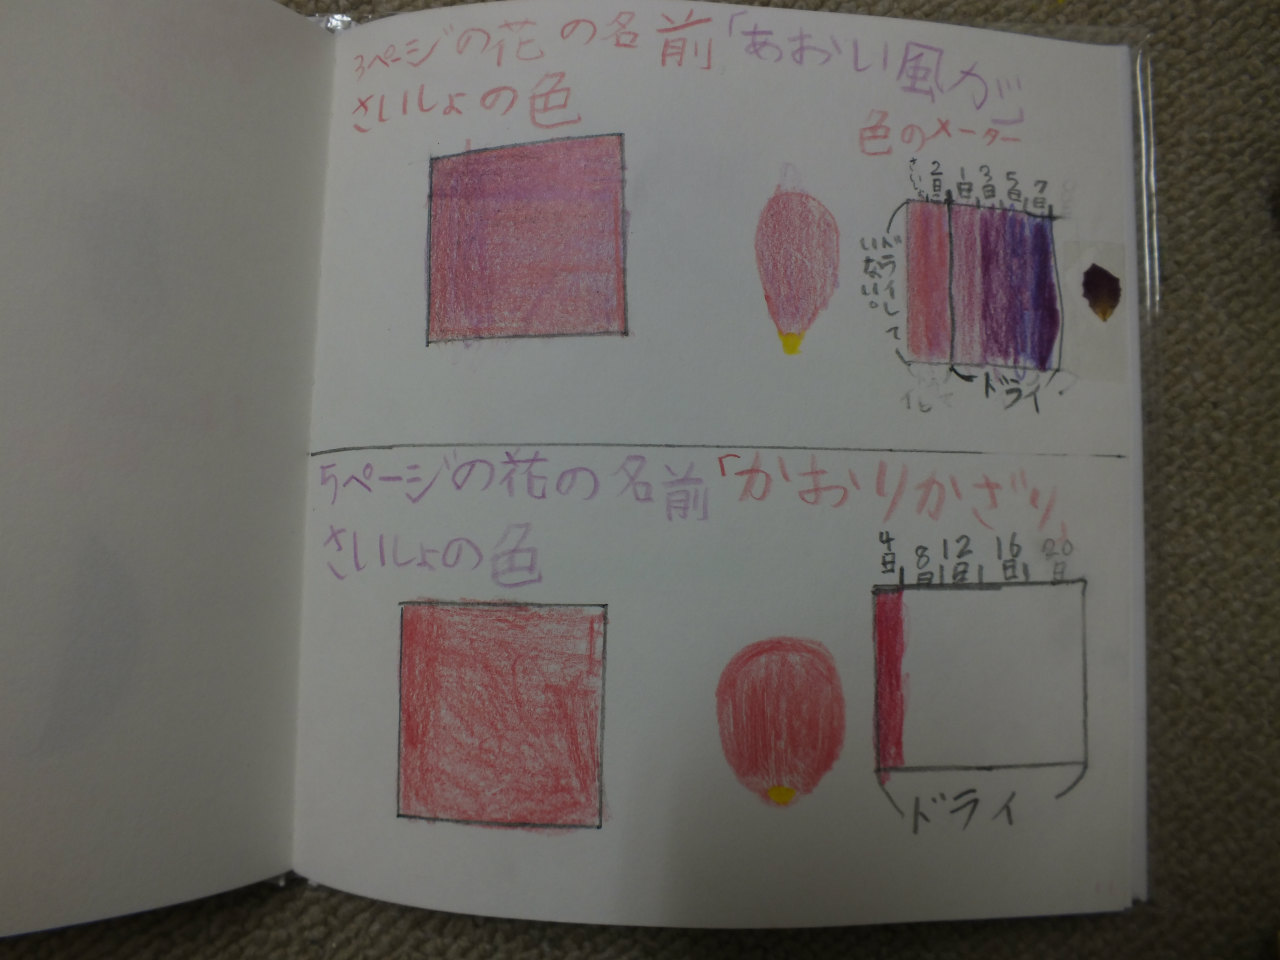 3ページの花の名前「あおい風が」
さいしょの色
色のメーター
さいしょ 2日 1日 3日 5日 7日
ドライして
いない。
ドライ
5ページの花の名前「かおりかざり」
さいしょの色
4日 8日 12日 16日 20日
ドライ